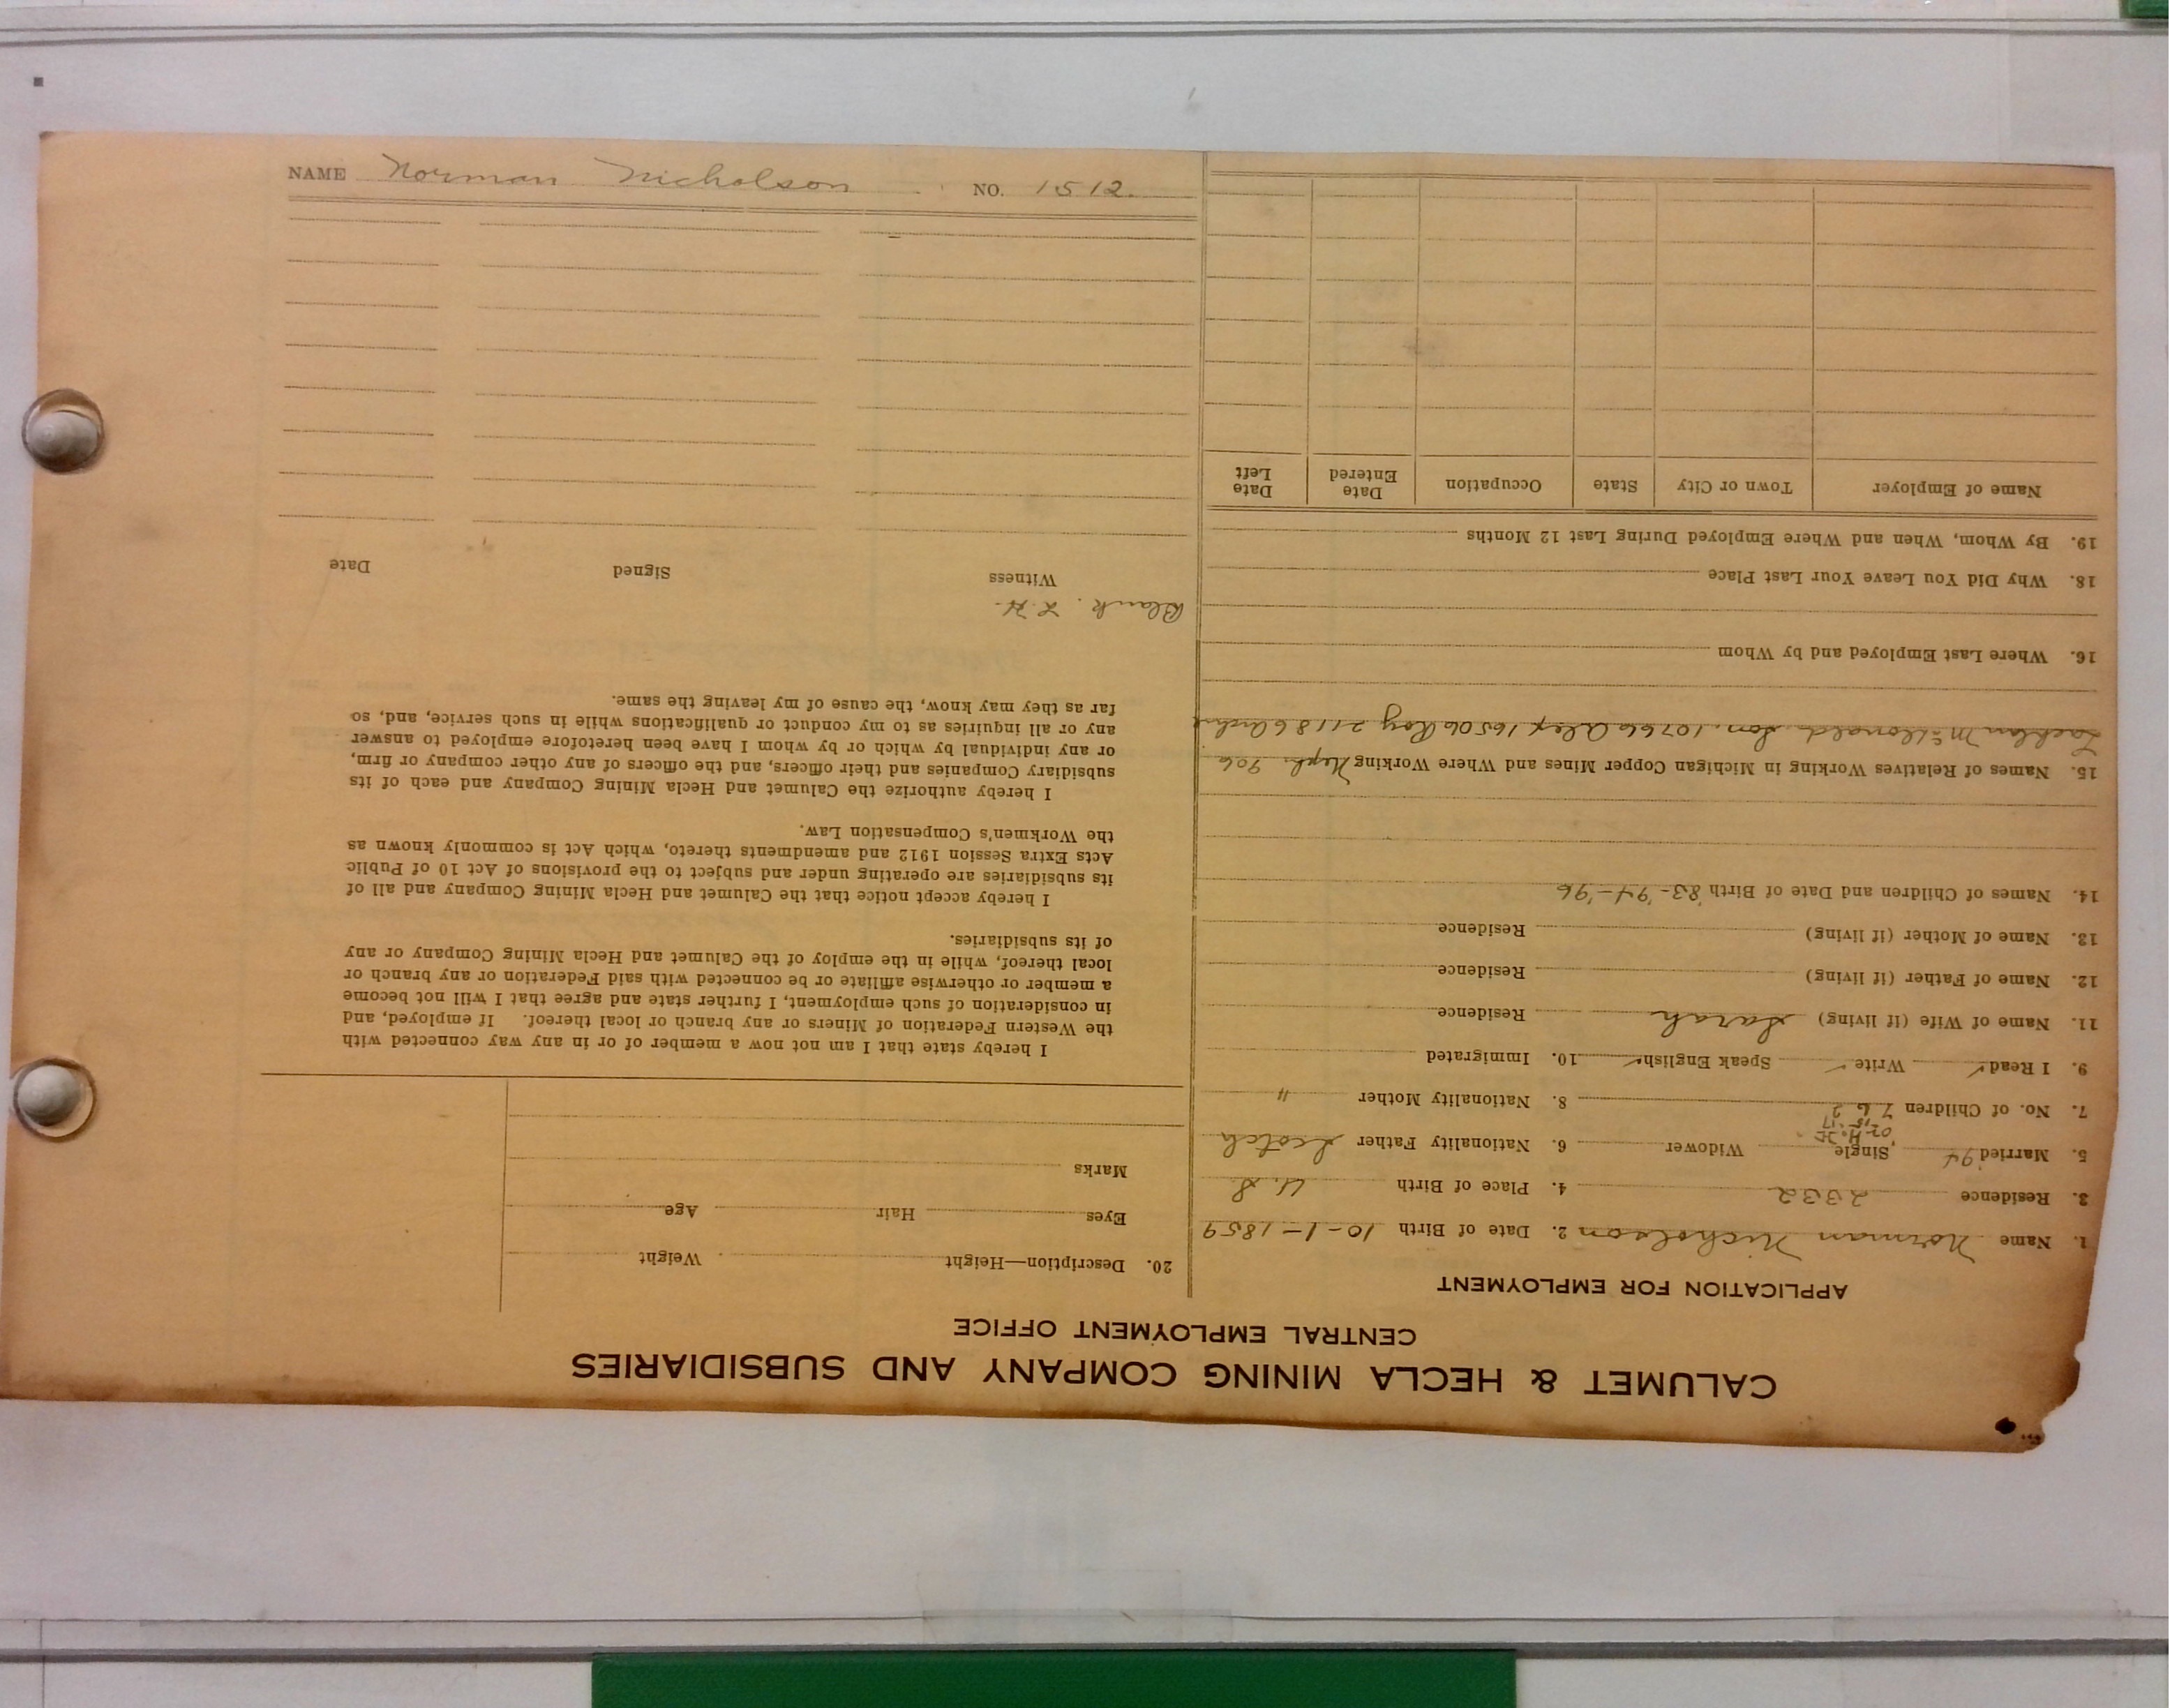 CALUMET & HECLA MINING COMPANY AND SUBSIDIARIES
CENTRAL EMPLOYMENT OFFICE
APPLICATION FOR EMPLOYMENT
1. Name Norman Nicholson 2. Date of Birth 10-1-1859
3. Residence 2332 4. Place of Birth U.S
5. Married '94 Single Widower 6. Nationality Father Scotch
7. No. of Children 7 6 2 8. Nationality Mother "
9. I Read ✓ Write ✓ Speak English ✓ 10. Immigrated
11. Name of Wife (if living) Sarah Residence
12. Name of Father (if living) Residence
13. Name of Mother (if living) Residence
14. Names of Children and Date of Birth '83-'94-'96
15. Names of Relatives Working in Michigan Copper Mines and Where Working Neph. 906
Lachlan McDonald. Son. 10766 Alex 16506 Roy 21186
16. Where Last Employed and by Whom
18. Why Did You Leave Your Last Place
19. By Whom, When and Where Employed During Last 12 Months
Name of Employer Town or City State Occupation Date Entered Date Left
20. Description—Height Weight
Eyes Hair Age
Marks
I hereby state that I am not now a member of or in any way connected with
the Western Federation of Miners or any branch or local thereof. If employed, and
in consideration of such employment, I further state and agree that I will not become
a member or otherwise affiliate or be connected with said Federation or any branch or
local thereof, while in the employ of the Calumet and Hecla Mining Company or any
of its subsidiaries.
I hereby accept notice that the Calumet and Hecla Mining Company and all of
its subsidiaries are operating under and subject to the provisions of Act 10 of Public
Acts Extra Session 1912 and amendments thereto, which Act is commonly known as
the Workmen's Compensation Law.
I hereby authorize the Calumet and Hecla Mining Company and each of its
subsidiary Companies and their officers, and the officers of any other company or firm,
or any individual by which or by whom I have been heretofore employed to answer
any or all inquiries as to my conduct or qualifications while in such service, and, so
far as they may know, the cause of my leaving the same.
Blank. L.H.
Witness Signed Date
NAME Norman Nicholson NO. 1512.